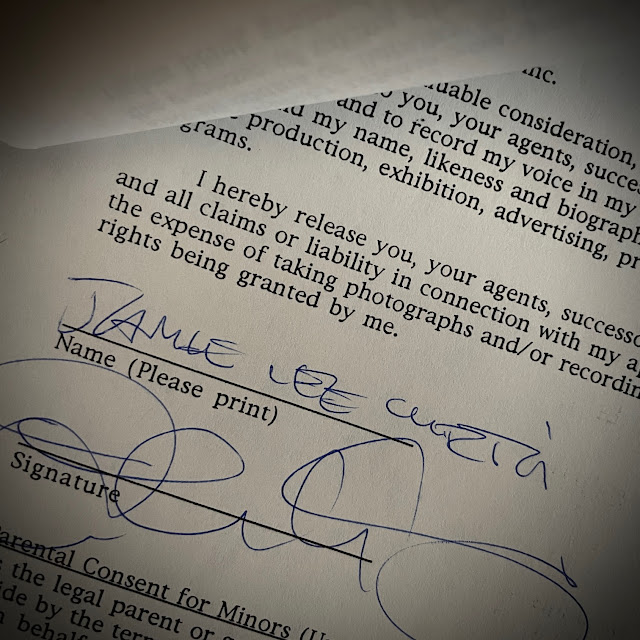 Inc.
uable consideration,
o you, your agents, succes
and to record my voice in my
my name, likeness and biograph
production, exhibition, advertising, pr
grams.
I hereby release you, your agents, successo
and all claims or liability in connection with my ap
the expense of taking photographs and/or recordin
rights being granted by me.
JAMIE LEE CURTIS
Name (Please print)
Signature
Parental Consent for Minors (U
the legal parent or g
ide by the term
behalf